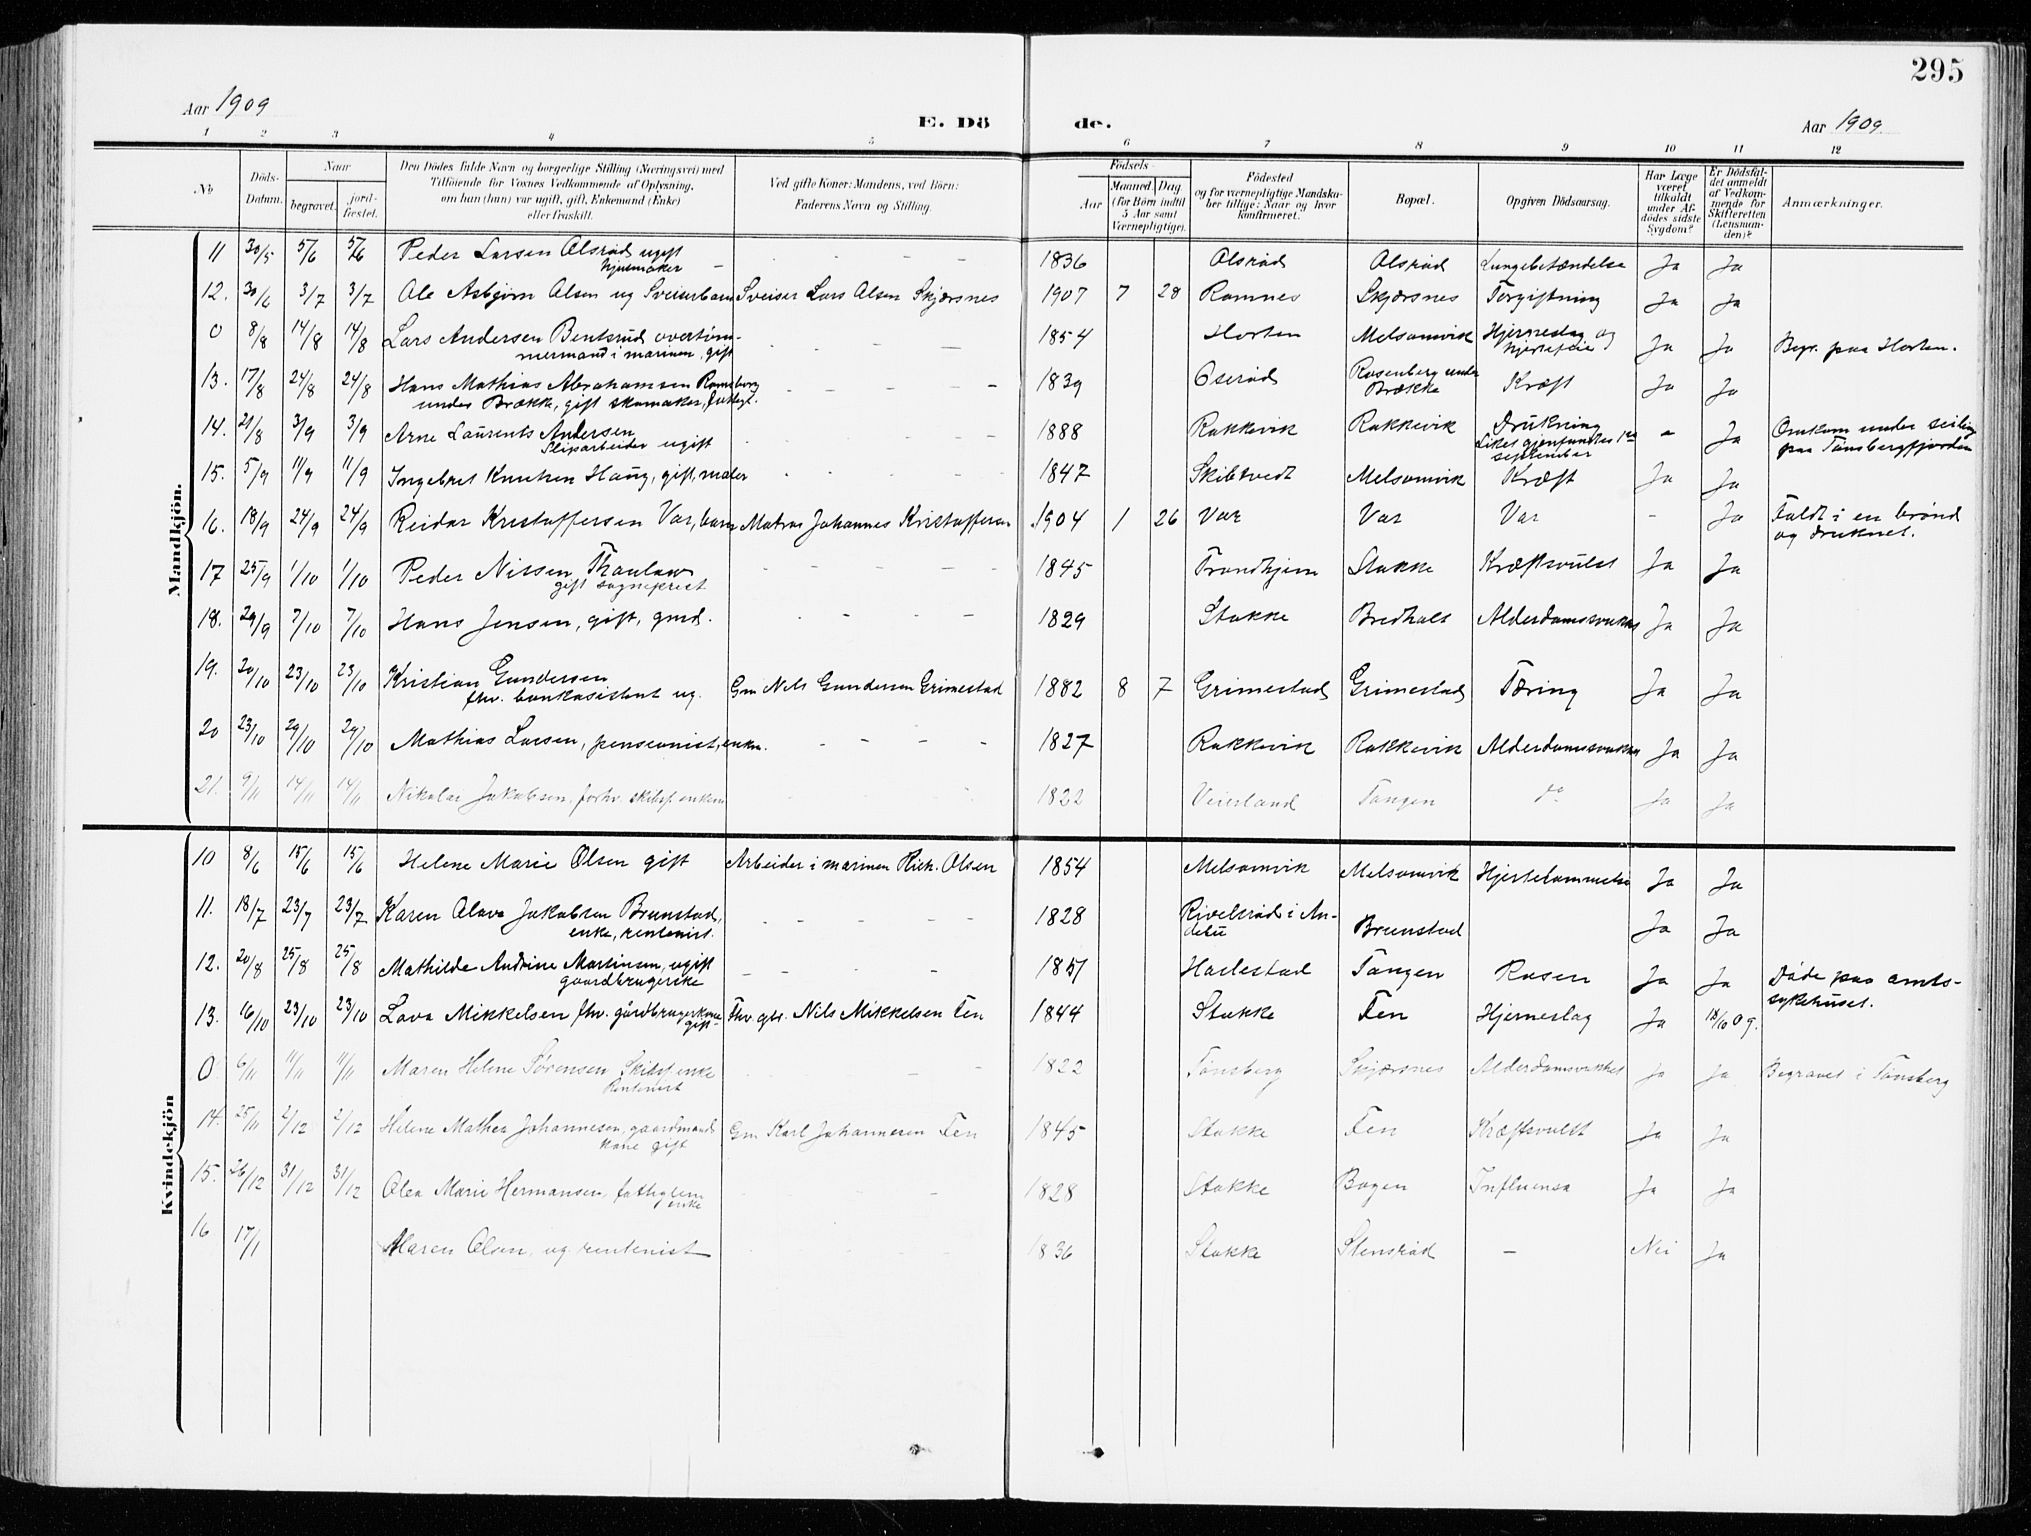 295
Aar 1909
E. Dö de.
Aar 1909.
1 2 3 4 5 6 7 8 9 10 11 12
No
Döds-Datum.
Naar
begravet.
jord-fæstet.
Den Dödes fulde Navn og borgerlige Stilling (Næringsvei) med
Tilföiende for Voxnes Vedkommende af Oplysning,
om han (hun) var ugift, gift, Enkemand (Enke)
eller fraskilt.
Ved gifte Koner: Mandens, ved Börn:
Faderens Navn og Stilling.
Födsels
Aar
Maaned. Dag.
(for Börn indtil
5 Aar samt
Værnepligtige).
Födested
og for værnepligtige Mandska-
ber tillige: Naar og hvor
konfirmeret.
Bopæl.
Opgiven Dödsaarsag.
Har Læge
været
tilkaldt
under Af-
dödes sidste
Sygdom?
Er Dödsfal-
det anmeldt
af Vedkom-
mende for
Skifteretten
(Lensman-
den)?
Anmærkninger.
Mandkjön.
11 30/5 5/6 5/6 Peder Larsen Olsrød ugift – – – – 1836 Olsrød Olsrød Lungebetændelse Ja Ja
12. 30/6 3/7 3/7 Ole Asbjørn Olsen ug Sveiserbarn Sveiser Lars Olsen Skjærsnes 1907 7 28 Ramnes Skjærsnes Forgiftning Ja Ja
0 8/8 14/8 14/8 Lars Andersen Bentsrud overtøm- – – – – 1854 Horten Melsomvik Hjerneslag og Ja Ja Begr. paa Horten.
mermand i marinen, gift hjertefeil
13. 17/8 24/8 24/8 Hans Mathias Abrahamsen – – – – 1839 Oserød Rosenberg under Kræft Ja Ja
under Brække, gift skomaker, Brække
14. 21/8 3/9 3/9 Arne Laurents Andersen – – – – 1888 Rakkevik Rakkevik Drukning – Ja Omkom under seiling
Sliparbeider ugift Liket gjenfundet 1ste paa Tønsbergfjorden
september
15. 5/9 11/9 11/9 Ingebret Knutsen Haug, gift, maler – – – – 1847 Skibtvedt Melsomvik Kræft Ja Ja
16. 18/9 24/9 24/9 Reidar Kristoffersen Var, barn Matros Johannes Kristoffersen 1904 1 26 Var Var Var – Ja Faldt i en brønd
og druknet.
17 25/9 1/10 1/10 Peder Nissen Thaulow – – – – 1845 Trondhjem Stokke Kræftsvulst Ja Ja
gift sogneprest
18. 29/9 7/10 7/10 Hans Jensen, gift, gmd. – – – – 1829 Stokke Bredholt Alderdomssvakhet Ja Ja
19. 20/10 23/10 23/10 Kristian Gundersen Gm Nils Gundersen Grimestad 1882 8 7 Grimestad Grimestad Tæring Ja Ja
fhv. bankasistent ug.
20 23/10 29/10 29/10 Mathias Larsen, pensionist, enkm. – – – 1827 Rakkevik Rakkevik Alderdomssvakhet Ja Ja
21. 9/11 14/11 14/11 Nikolai Jakobsen, forhv. skibsf. enkem – – – 1822 Veierland Tangen do Ja Ja
Kvindekjön
10 8/6 15/6 15/6 Helene Marie Olsen gift Arbeider i marinen Rich. Olsen 1854 Melsomvik Melsomvik Hjertelammelse Ja Ja
11. 18/7 23/7 23/7 Karen Olava Jakobsen Brunstad, – – – – 1828 Rivelsrød i An- Brunstad Ja Ja
enke, rentenist. debu
12. 20/8 25/8 25/8 Mathilde Andrine Martinsen, ugift – – – – 1851 Harlestad Tangen Rosen Ja Ja Døde paa amts-
gaardbrugerske sykehuset.
13. 16/10 23/10 23/10 Lova Mikkelsen fhv. gårdbrugerkone Fhv. gbr. Nils Mikkelsen Fen 1844 Stokke Fen Hjerneslag Ja 18/10 09.
gift
0 6/11 11/11 11/11 Maren Helene Sørensen Skibsf. enke – – – 1822 Tønsberg Skjærsnes Alderdomsvakhet Ja Ja Begravet i Tønsberg
Rentenist
14. 25/11 2/12 2/12 Helene Mathea Johannesen, gaardmands Gm Karl Johannesen Fen 1845 Stokke Fen Kræftsvulst Ja Ja
kone gift
15. 26/12 31/12 31/12 Olea Marie Hermansen, fattiglem – – – 1828 Stokke Bogen Influensa Ja Ja
enke
16 17/1 Maren Olsen, ug rentenist – – – 1836 Stokke Stensrød – Nei Ja